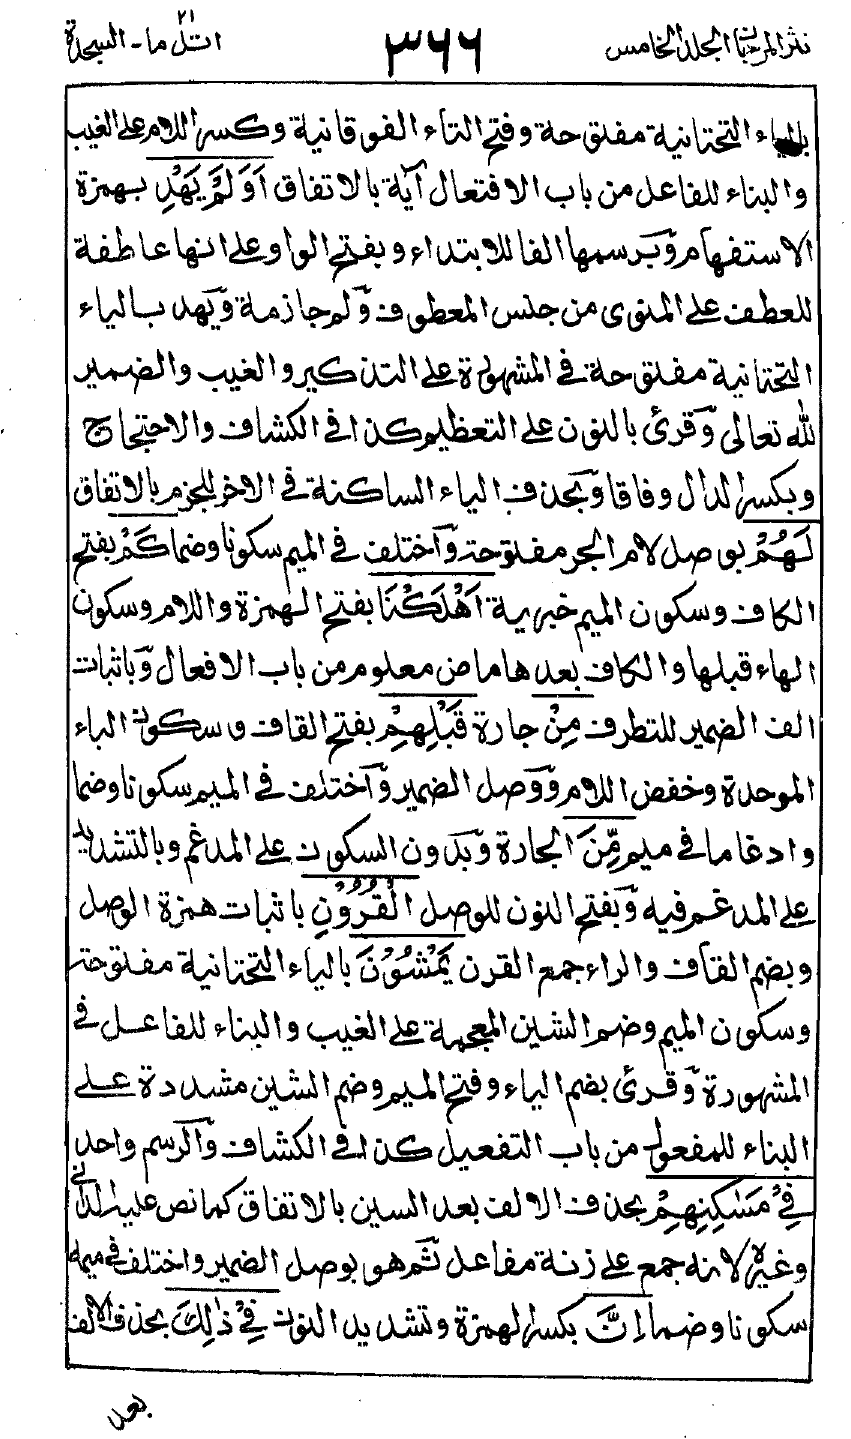 نثر المرجان المجلد الخامس ٣٦٦ اتل ما - السجدة ٢١
بالياء التحتانية مفتوحة وفتح التاء الفوقانية وكسر اللام على الغيب
والبناء للفاعل من باب الافتعال آية بالاتفاق أَوَلَمْ يَهْدِ بهمزة
الاستفهام وبرسمها الفا للابتداء وبفتح الواو على انها عاطفة
للعطف على المنوى من جنس المعطوف ولم جازمة ويهد بالياء
التحتانية مفتوحة في المشهورة على التذكير والغيب والضمير
لله تعالى وقرئ بالنون على التعظيم كذا في الكشاف والاحتجاج
وبكسر الدال وفاقا وبحذف الياء الساكنة في الاخر للجزم بالاتفاق
لَهُمْ بوصل لام الجر مفتوحة واختلف في الميم سكونا وضما كَمْ بفتح
الكاف وسكون الميم خبرية اَهْلَكْنَا بفتح الهمزة واللام وسكون
الهاء قبلها والكاف بعدها ماض معلوم من باب الافعال وباثبات
الف الضمير للتطرف مِنْ جارة قَبْلِهِمْ بفتح القاف وسكون الباء
الموحدة وخفض اللام ووصل الضمير واختلف في الميم سكونا وضما
وادغاما في ميم مِّنَ الجارة وبدون السكون على المدغم وبالتشديد
على المدغم فيه وبفتح النون للوصل الْقُرُوْنِ باثبات همزة الوصل
وبضم القاف والراء جمع القرن يَمْشُوْنَ بالياء التحتانية مفتوحة
وسكون الميم وضم الشين المعجمة على الغيب والبناء للفاعل في
المشهورة وقرئ بضم الياء وفتح الميم وضم الشين مشددة على
البناء للمفعول من باب التفعيل كذا في الكشاف والرسم واحد
فِيْ مَسٰكِنِهِمْ بحذف الالف بعد السين بالاتفاق كما نص عليه الداني
وغيره لانه جمع على زنة مفاعل ثم هو بوصل الضمير واختلف في ميمه
سكونا وضما اِنَّ بكسر الهمزة وتشديد النون فِيْ ذٰلِكَ بحذف الالف
بعد